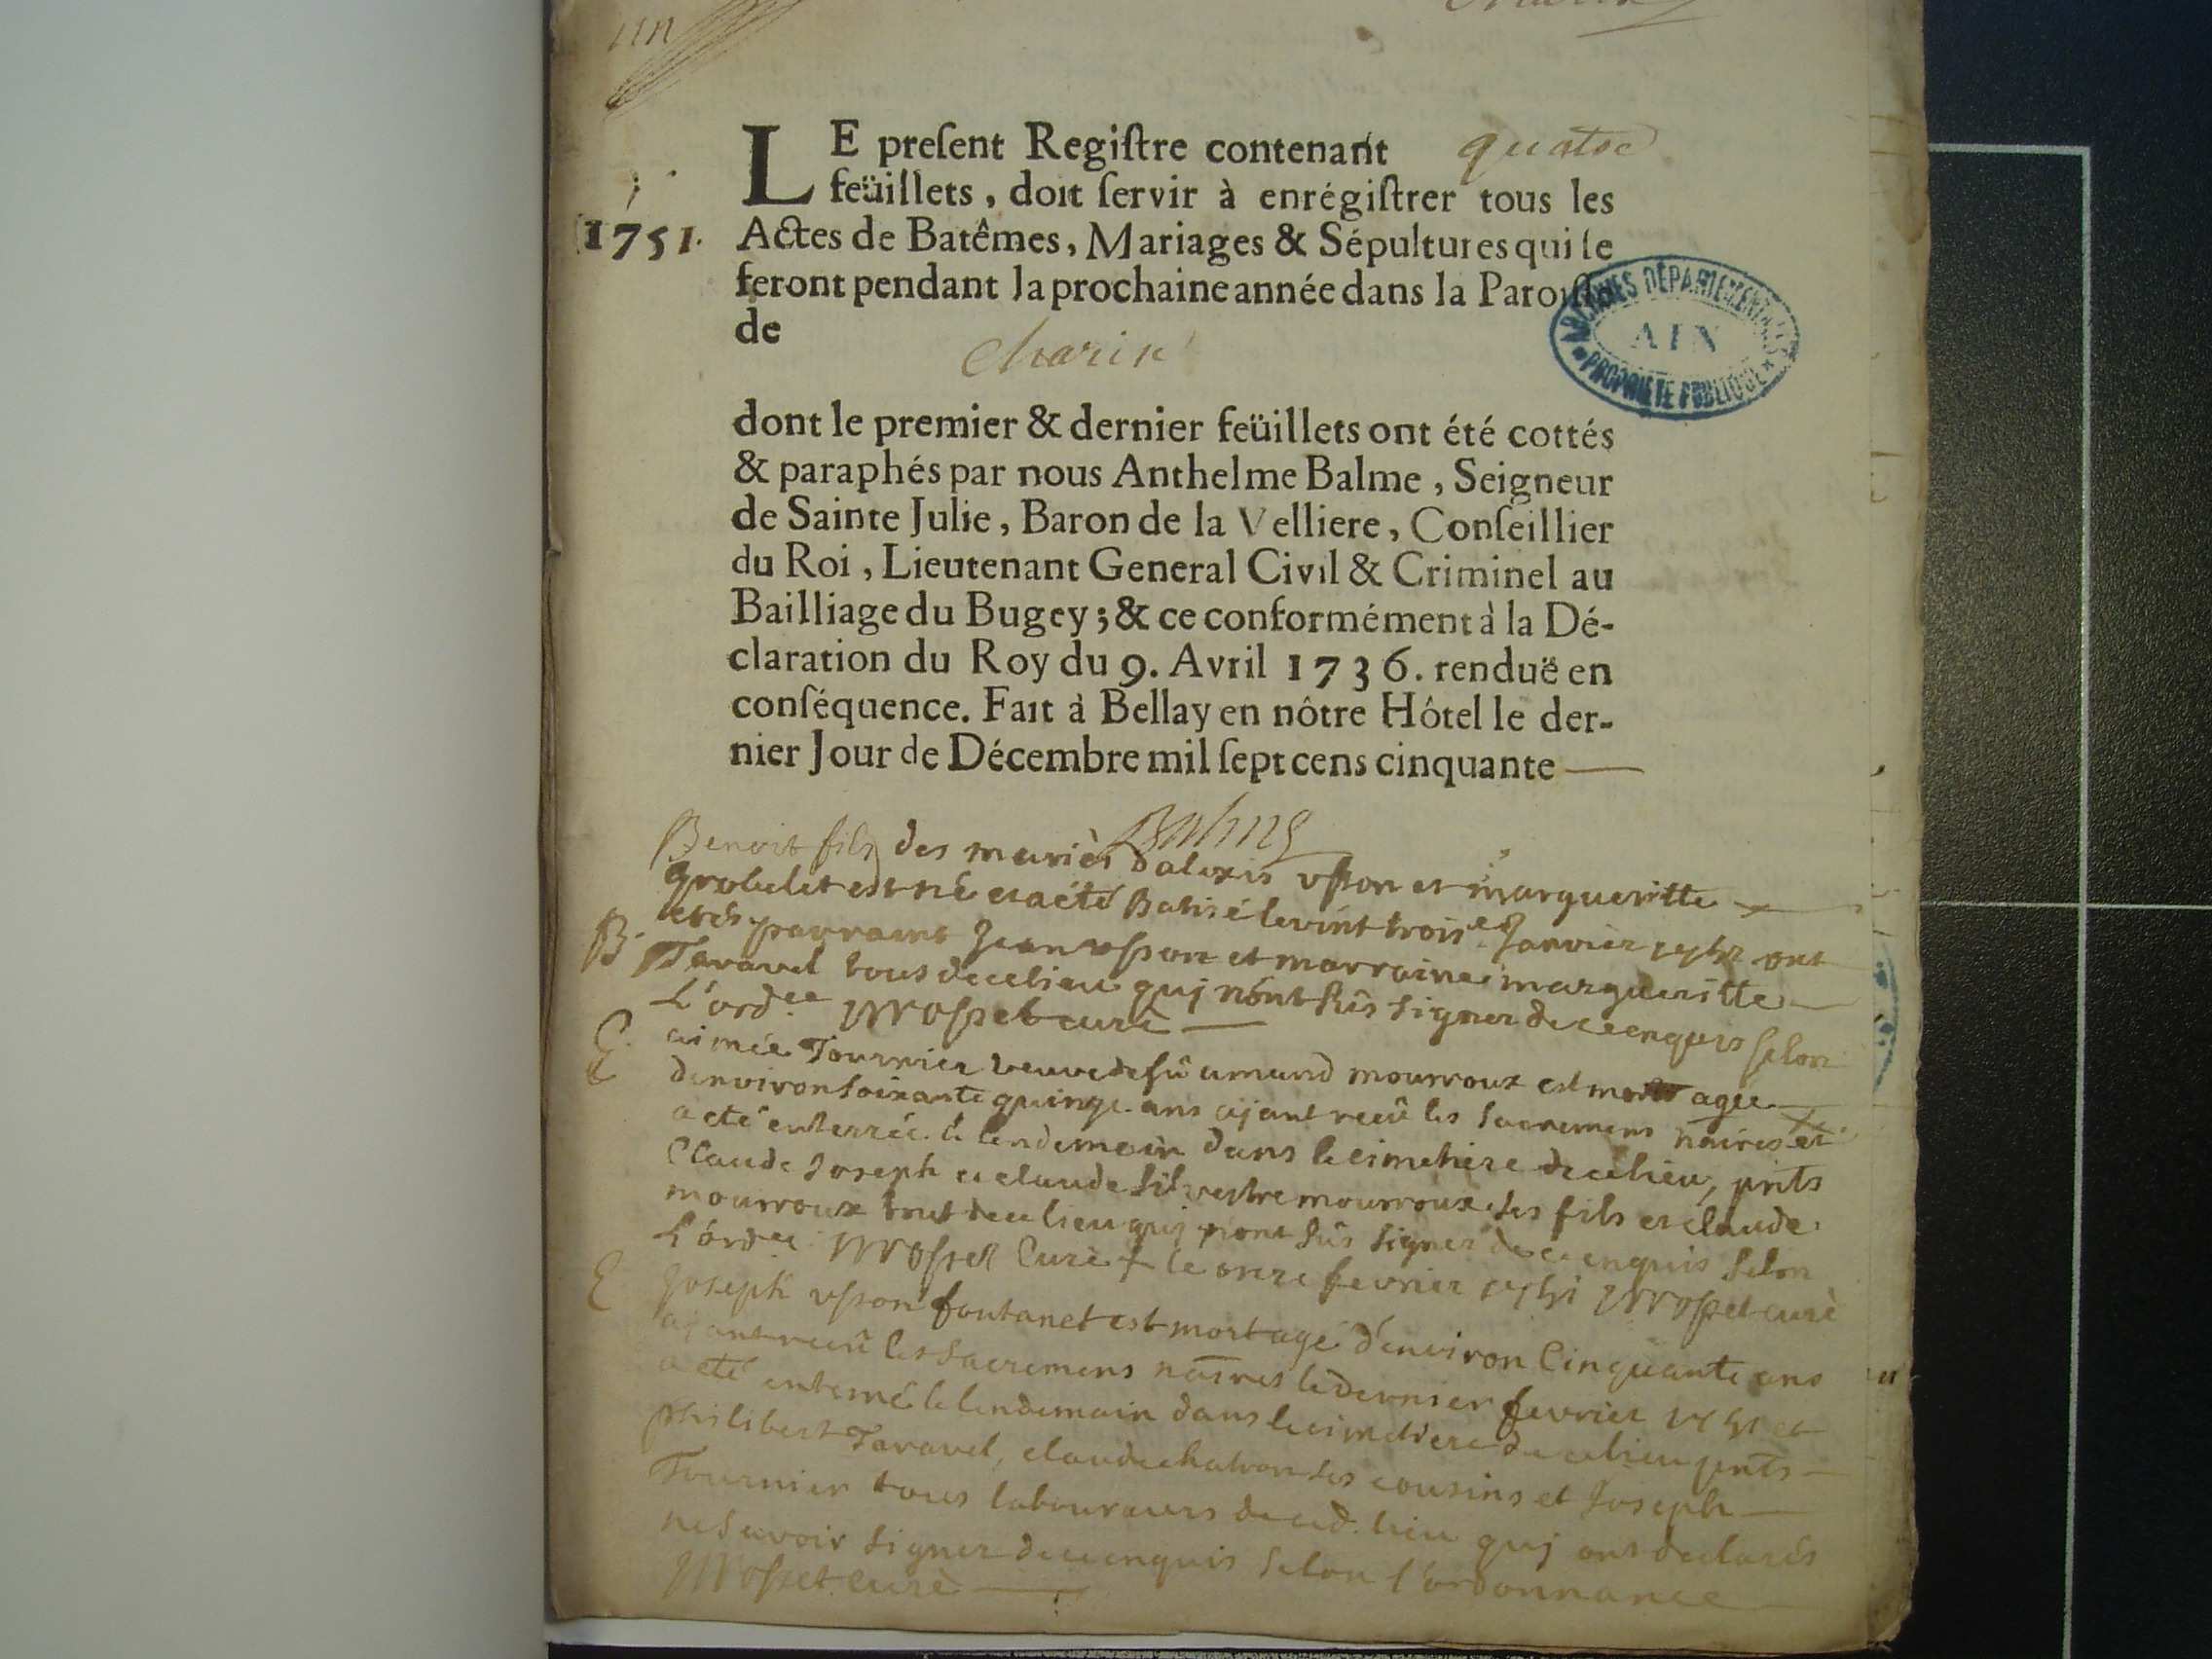 un
LE preſent Regiſtre contenant quatre
feüillets, doit ſervir à enrégiſtrer tous les
1751. Actes de Batêmes, Mariages & Sépultures qui ſe
feront pendant la prochaine année dans la Paroiſſe
de
Charin
ARCHIVES DÉPARTEMENTALES
AIN
PROPRIÉTÉ PUBLIQUE
dont le premier & dernier feüillets ont été cottés
& paraphés par nous Anthelme Balme, Seigneur
de Sainte Julie, Baron de la Velliere, Conſeillier
du Roi, Lieutenant General Civil & Criminel au
Bailliage du Bugey; & ce conformément à la Dé-
claration du Roy du 9. Avril 1736. renduë en
conſéquence. Fait à Bellay en nôtre Hôtel le der-
nier Jour de Décembre mil ſept cens cinquante
Balme
Benoit fils des mariés d'alexis uſson et margueritte
Grobelet est né et a été Batisé le vint trois Janvier 1751 ont
B. étés parrains Jean uſson et marraine margueritte
Taravel tous de ce lieu quj n'ont sûs signer de ce enquis selon
L'ord.ce Moſſet curé
E aimée Tournier veuve de fû amand mourroux est morte agée
d'environ soixante quinze ans ajant reçû les sacremens náires et
a été enterrée le lendemain dans le cimetiere de ce lieu, pnts
Claude Joseph et claude silvestre mourroux ses fils et claude
mourroux tout de ce lieu quj n'ont sûs signer de ce enquis selon
L'ord.ce Moſſet Curé + le onze fevrier 1751 Moſſet curé
E Joseph uſson fontanet est mort agé d'environ Cinquante ans
ajant reçû les sacremens náires le dernier fevrier 1751 et
a été enterré le lendemain dans le cimetiere de ce lieu pnts
philibert Taravel, claude chatron ses cousins et Joseph
Tournier tous laboureurs de ced. lieu quj ont declarés
ne savoir signer de ce enquis selon l'ordonnance
Moſſet curé